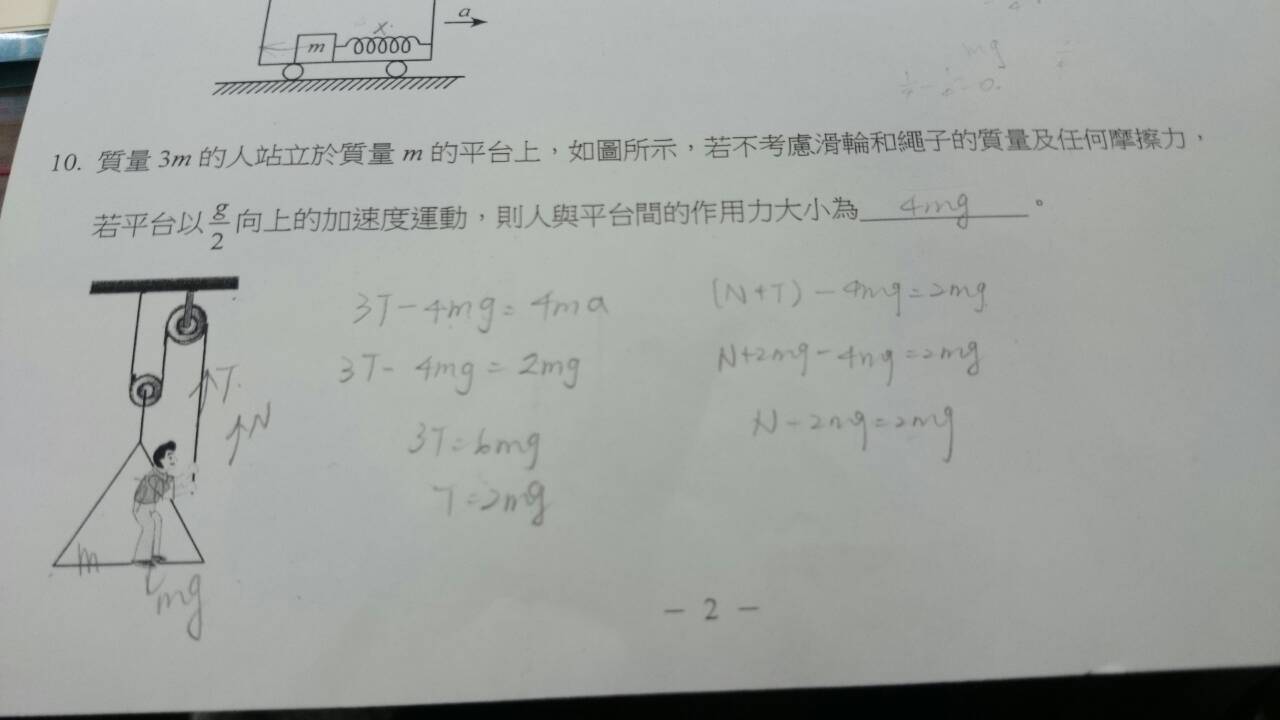 a
x
m
mg
10. 質量 3m 的人站立於質量 m 的平台上，如圖所示，若不考慮滑輪和繩子的質量及任何摩擦力，
若平台以 g/2 向上的加速度運動，則人與平台間的作用力大小為 4mg 。
3T-4mg=4ma
(N+T)-4mg=2mg
3T-4mg=2mg
N+2mg-4mg=2mg
T
N
3T=6mg
N-2mg=2mg
T=2mg
m
mg
- 2 -